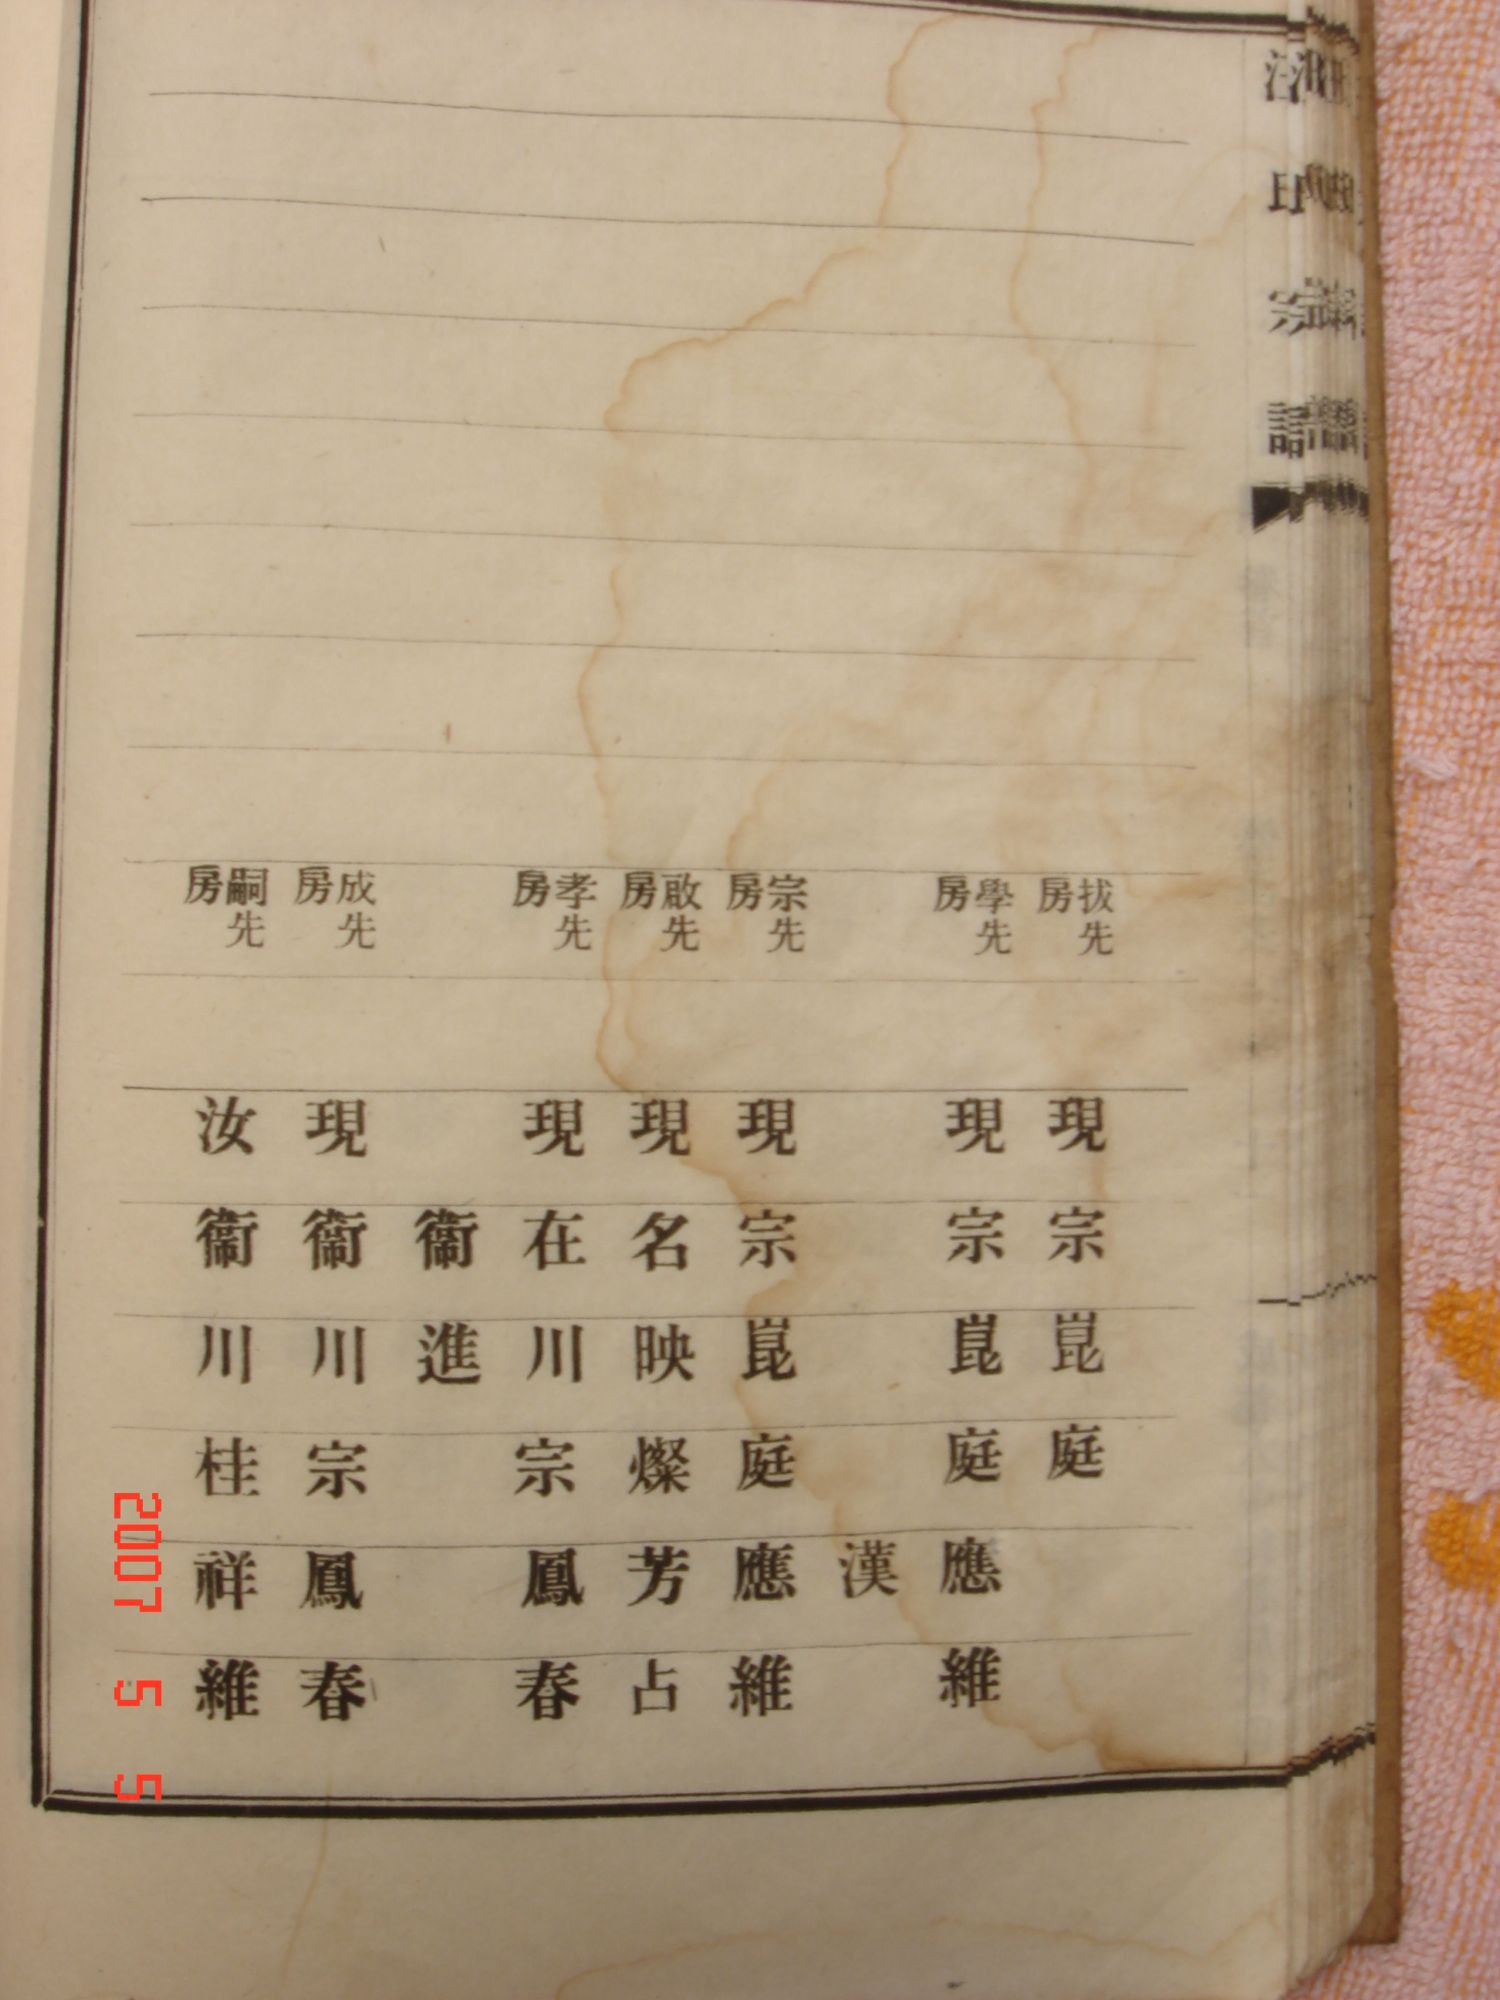 拔先房
現宗崑庭
學先房
現宗崑庭應維
漢
宗先房
現宗崑庭應維
敢先房
現名映燦芳占
孝先房
現在川宗鳳春
衞進
成先房
現衞川宗鳳春
嗣先房
汝衞川桂祥維
2007 5 5